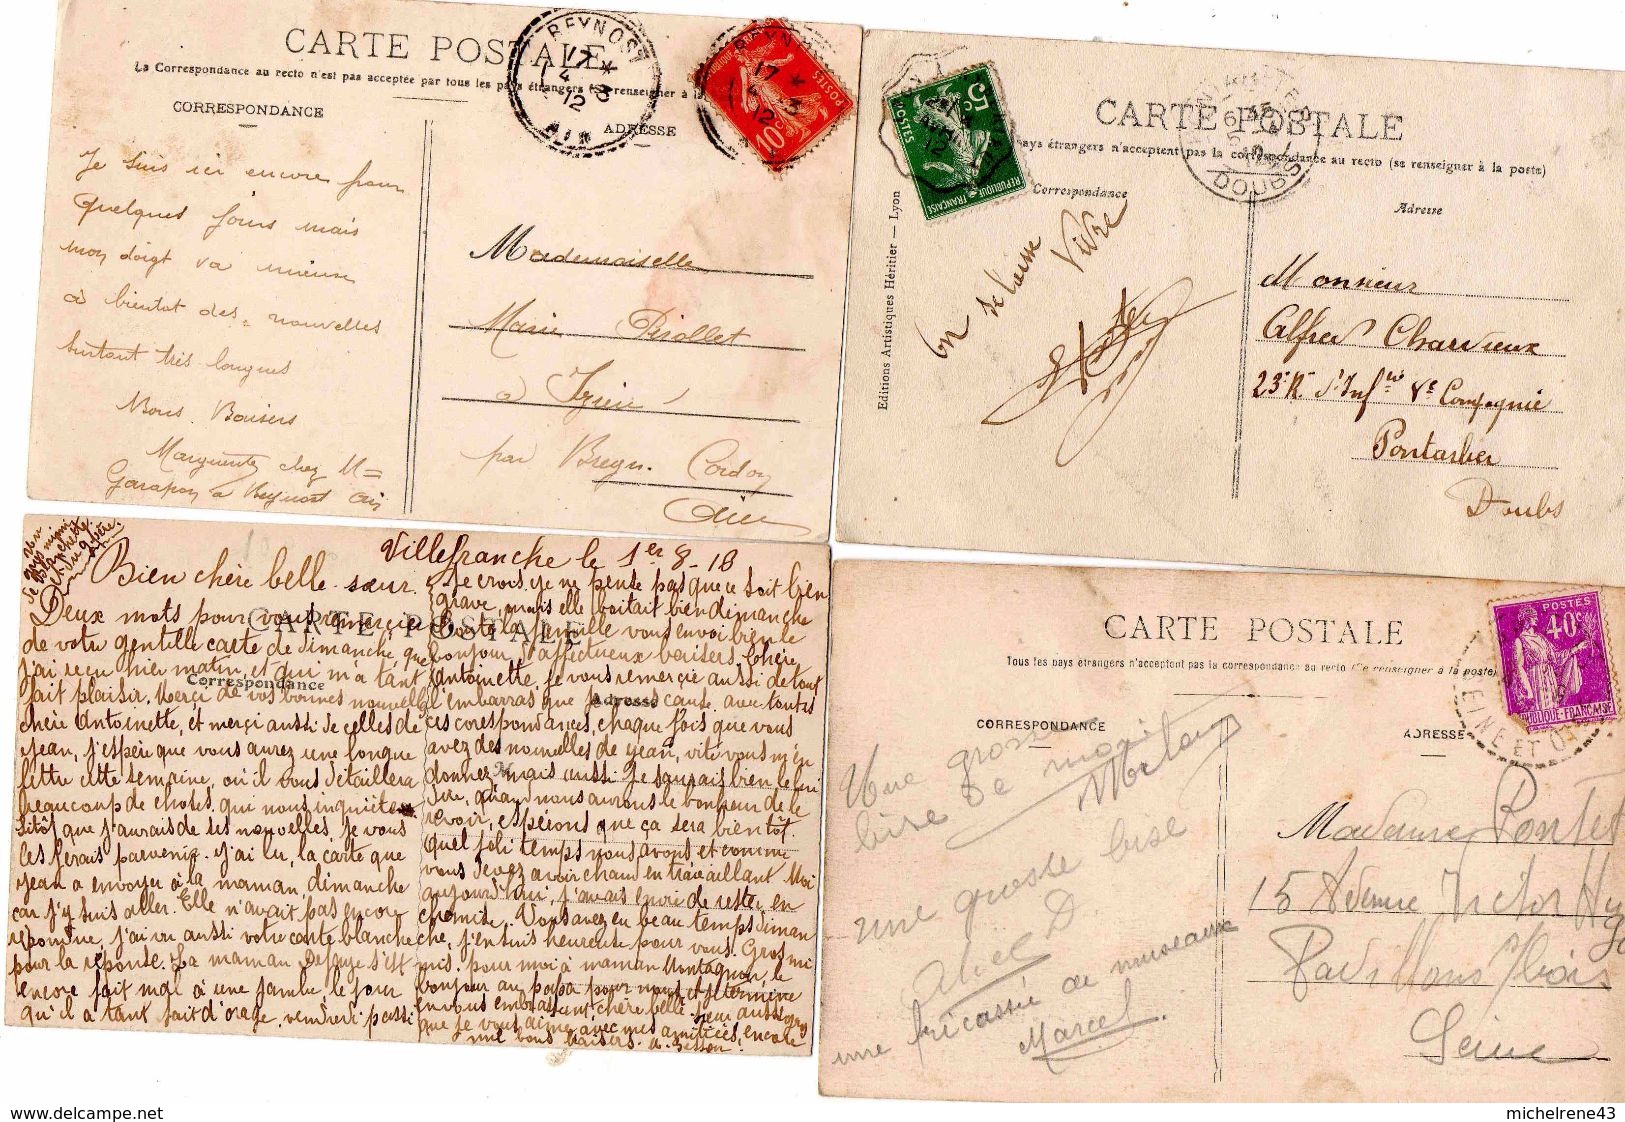 CARTE POSTALE
La Correspondance au recto n'est pas acceptée par tous les pays étrangers (Se renseigner à la
CORRESPONDANCE
ADRESSE
BEYNOST
17 *
4 - 3
12
AIN
10c
POSTES
Je suis ici encore pour
quelques jours mais
mon doigt va mieux
à bientot des nouvelles
surtout très longues
Bons Baisers
Marguerite chez M=
Garapon a Beynost Ain
Mademoiselle
Marie Pirollet
à Izieu
par Bregn. Cordon
Ain
CARTE POSTALE
pays étrangers n'acceptent pas la correspondance au recto (se renseigner à la poste)
Correspondance
Adresse
Editions Artistiques Héritier — Lyon
5c
POSTES
REPUBLIQUE FRANÇAISE
DOUBS
on se laisse Vivre
Monsieur
Alfred Charvieux
23e R. d'Infrie Ve Compagnie
Pontarlier
Doubs
Villefranche le 1er 8-18
Bien chère belle-sœur.
CARTE POSTALE
Correspondance
Adresse
Deux mots pour vous remercier
de votre gentille carte de dimanche que
j'ai reçu hier matin, et qui m'a tant
fait plaisir. Merçi de vos bonnes nouvelles
chère Antoinette, et merçi aussi de celles de
Jean, j'espère que vous aurez une longue
lettre cette semaine, où il vous détaillera
beaucoup de choses qui nous inquiète.
Sitôt que j'aurais de ses nouvelles, je vous
les ferais parvenir. J'ai lu, la carte que
Jean a envoyer à la maman, dimanche
car j'y suis aller. Elle n'avait pas encore
répondue, j'ai vu aussi votre carte blanche
pour la réponse. La maman s'est
encore fait mal à une jambe le jour
qu'il a tant fait d'orage, vendredi passé
je crois, je ne pense pas que ce soit bien
grave, mais elle boitait bien dimanche
Toute la famille vous envoi bien le
bonjour d'affectueux baisers. Chère
Antoinette, je vous remerçie aussi de tout
l'embarras que je vous cause, avec toutes
ces corespondances, chaque fois que vous
avez des nouvelles de Jean, vite vous m'en
donnez, mais aussi je saurais bien le lui
dire, quand nous aurons le bonheur de le
revoir, espérons que ça sera bientôt.
Quel joli temps nous avons et comme
vous devez avoir chaud en travaillant. Moi
aujourd'hui, j'avais envie de rester en
chemise. Vous avez eu beau temps diman
che, j'en suis heureuse pour vous. Gros mi
mis. pour moi à maman Montagnon, le
bonjour au papa pour nous, et je termine
en vous embrassant chère belle-sœur aussi
que je vous aime avec mes amitiées, encore
mille bons baisers.
CARTE POSTALE
Tous les pays étrangers n'acceptent pas la correspondance au recto (Se renseigner à la poste)
CORRESPONDANCE
ADRESSE
POSTES
40c
REPUBLIQUE-FRANÇAISE
SEINE ET OISE
Une grosse
bise de
une grosse bise
une fricassée de museaux
Marcel.
Madame Pontet
15 Avenue Victor Hugo
Pavillons s/Bois
Seine
www.delcampe.net
michelrene43